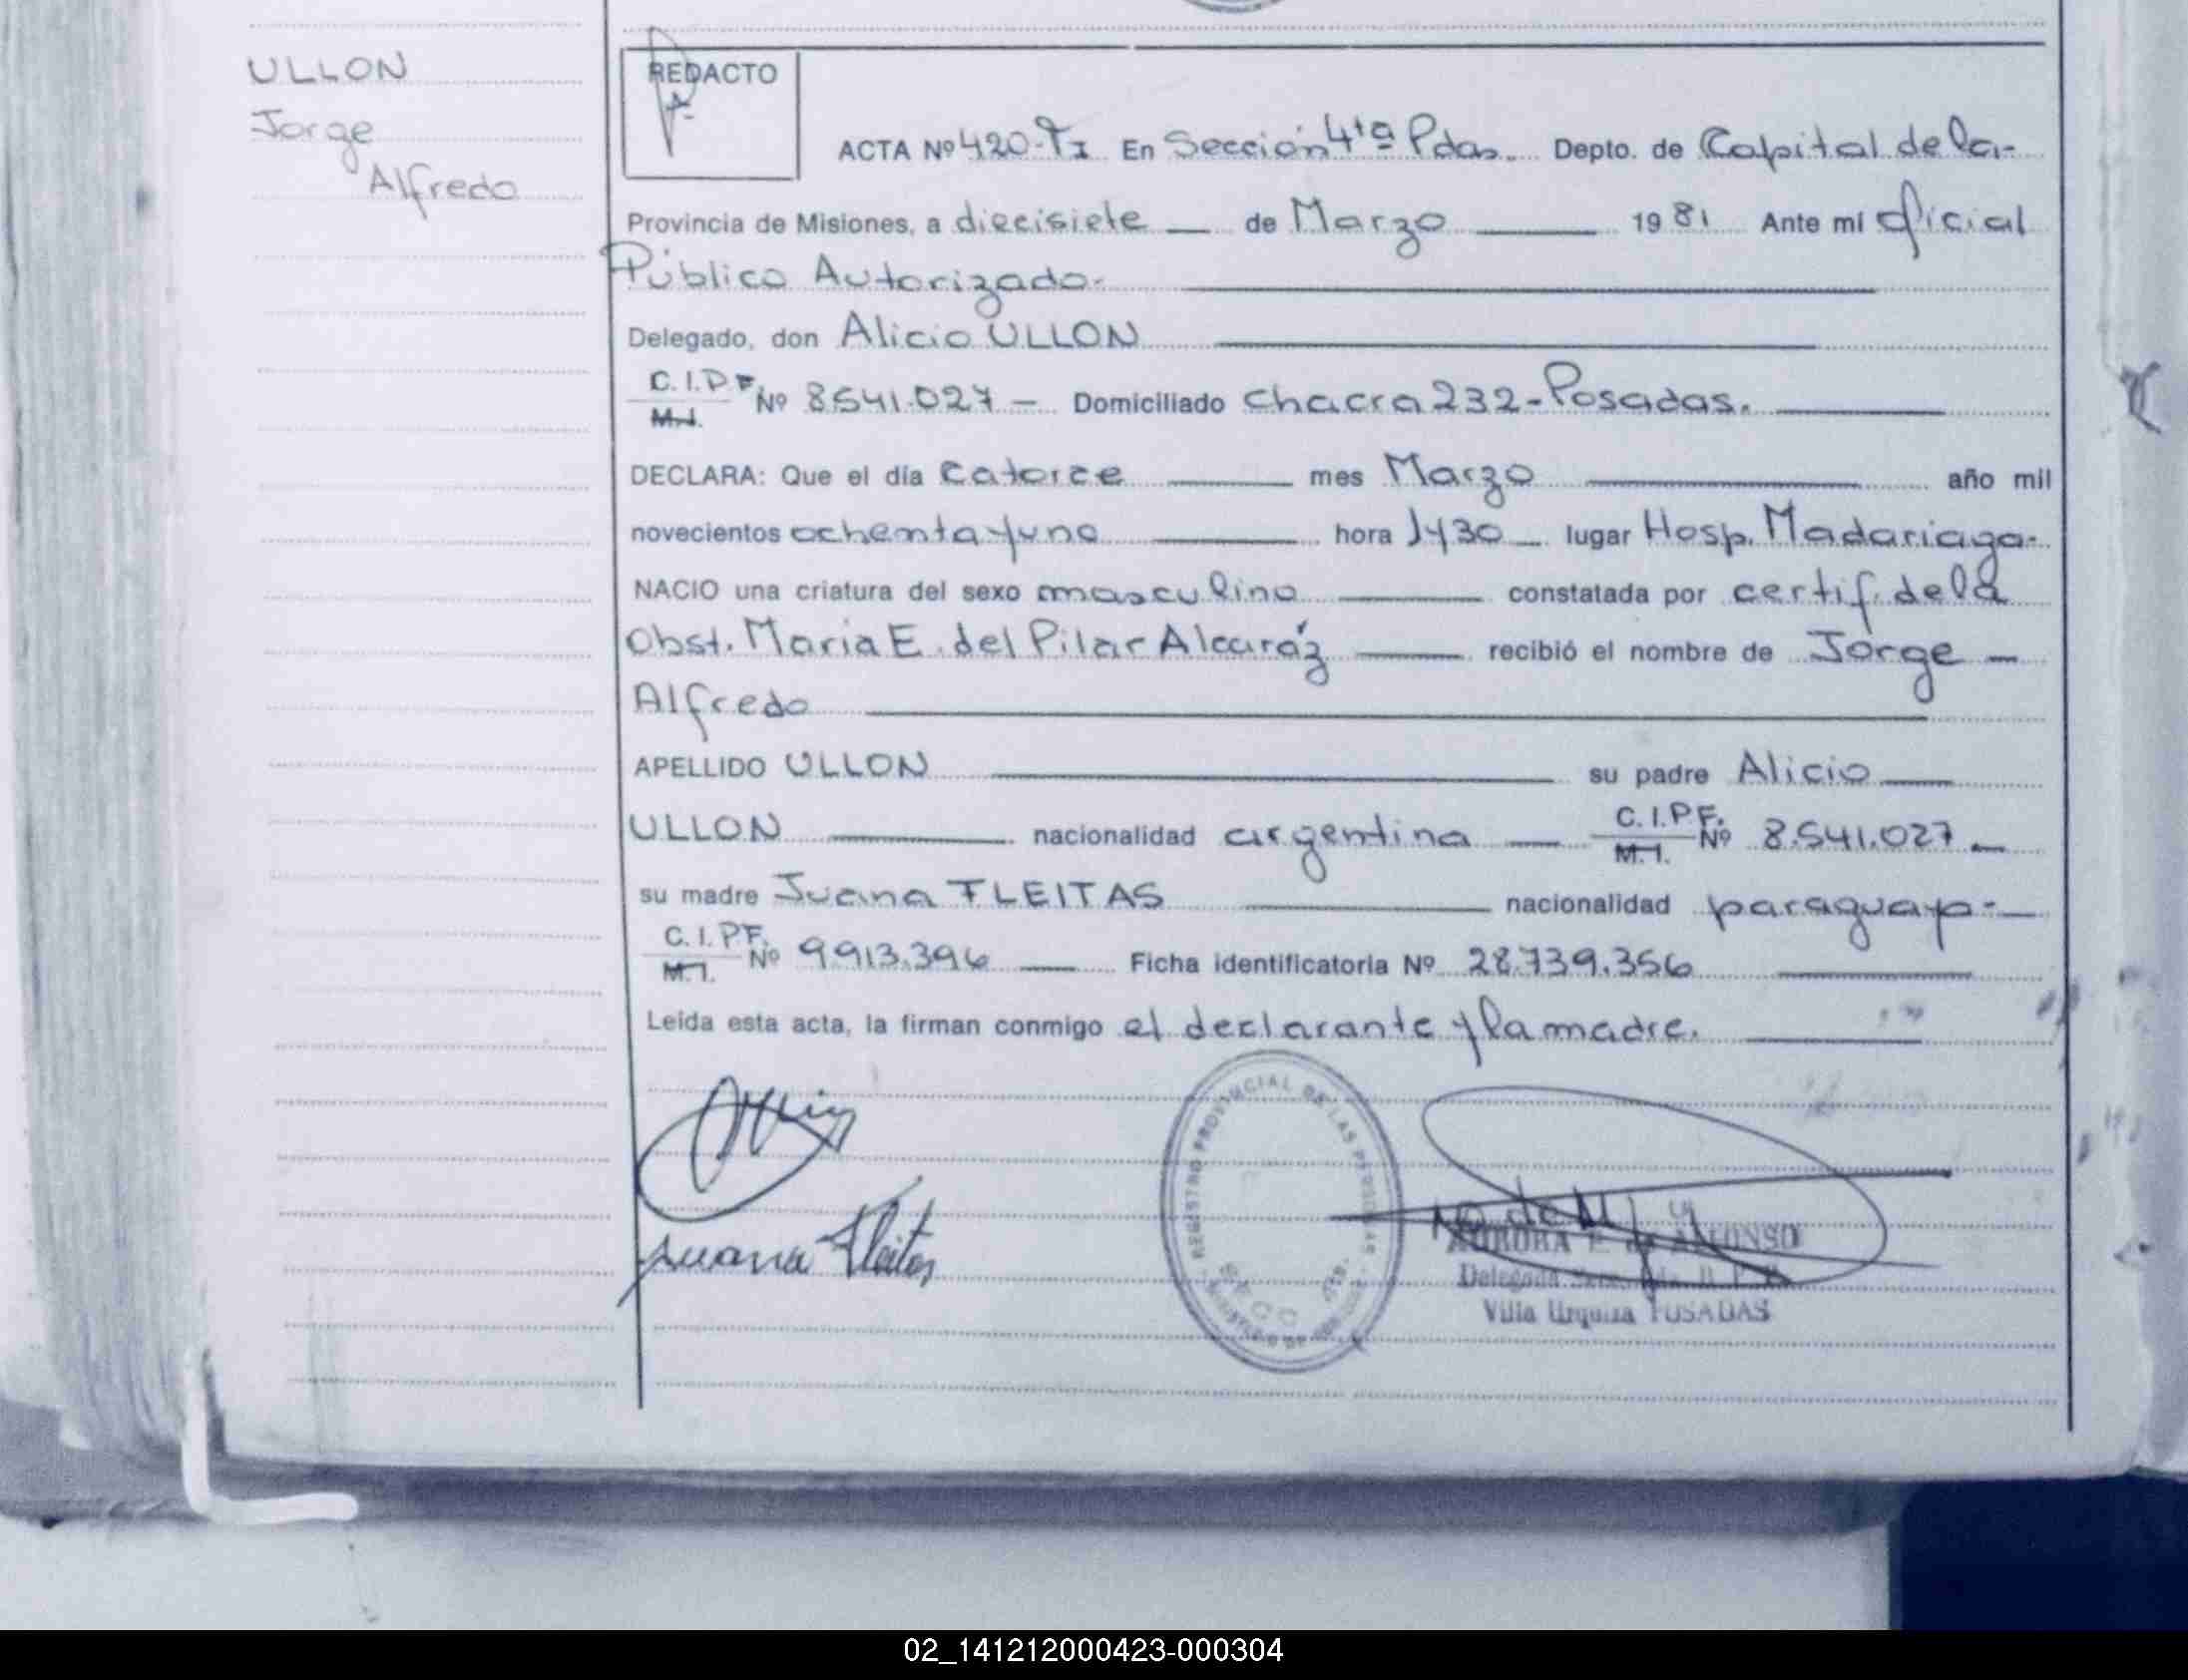 ULLON
Jorge
Alfredo
REDACTO
ACTA Nº 420-TI En Sección 4ta Pdas. Depto. de Capital de la-
Provincia de Misiones, a diecisiete de Marzo 1981 Ante mi Oficial
Público Autorizado.
Delegado, don Alicio ULLON
C.I.P.F. M.I. Nº 8541.027 - Domiciliado chacra 232-Posadas.
DECLARA: Que el día Catorce mes Marzo año mil
novecientos ochenta y uno hora 1430 lugar Hosp. Madariaga-
NACIO una criatura del sexo masculino constatada por certif. de la
Obst. Maria E. del Pilar Alcaráz recibió el nombre de Jorge -
Alfredo
APELLIDO ULLON su padre Alicio
ULLON nacionalidad argentina C.I.P.F. M.I. Nº 8.541.027 -
su madre Juana FLEITAS nacionalidad paraguaya-
C.I.P.F. M.I. Nº 9.913.396 Ficha identificatoria Nº 28.739.356
Leída esta acta, la firman conmigo el declarante y la madre.
REGISTRO PROVINCIAL DE LAS PERSONAS
Juana Fleitas
AURORA E. de ALFONSO
Delegada
Villa Urquiza POSADAS
02_141212000423-000304